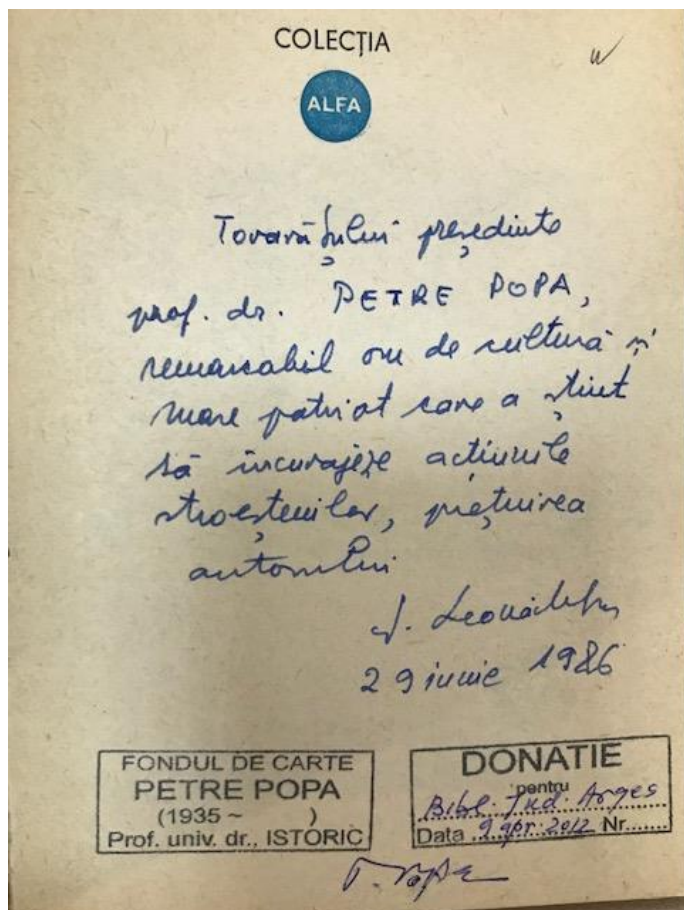 COLECȚIA
ALFA
Tovarășului președinte
prof. dr. PETRE POPA,
remarcabil om de cultură și
mare patriot care a știut
să încurajeze acțiunile
stroeștenilor, prețuirea
autorului
29 iunie 1986
FONDUL DE CARTE
PETRE POPA
(1935 ~ )
Prof. univ. dr., ISTORIC
DONATIE
pentru
Bibl. Jud. Argeș
Data 9 apr. 2012 Nr.......
P. Popa